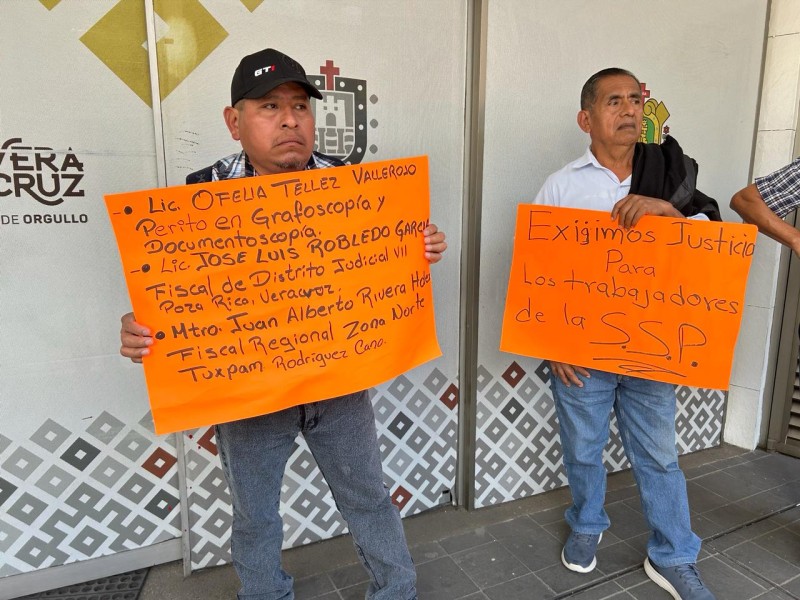 VERA
CRUZ
DE ORGULLO
GTI
- Lic. OFELIA TELLEZ VALLEROJO
Perito en Grafoscopía y
Documentoscopía.
- Lic. JOSE LUIS ROBLEDO GARCIA
Fiscal de Distrito Judicial VII
Poza Rica, Veracruz.
• Mtro. Juan Alberto Rivera
Fiscal Regional Zona Norte
Tuxpam Rodríguez Cano.
Exigimos Justicia
Para
Los trabajadores
de la S.S.P.